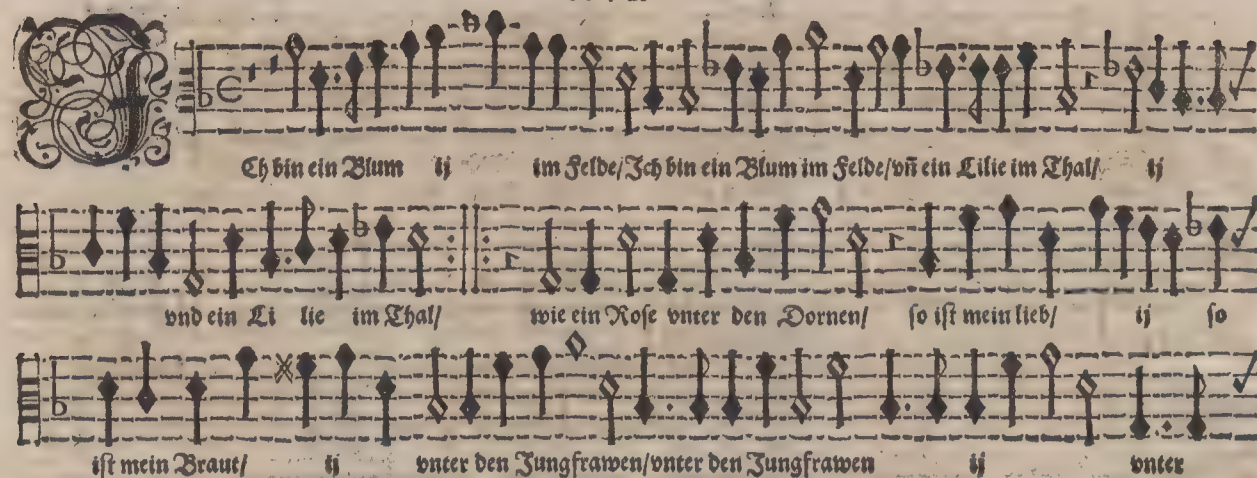 ICh bin ein Blum ij im Felde/Ich bin ein Blum im Felde/vn̄ ein Lilie im Thal/ ij
vnd ein Li lie im Thal/ wie ein Rose vnter den Dornen/ so ist mein lieb/ ij so
ist mein Braut/ ij vnter den Jungfrawen/vnter den Jungfrawen ij vnter